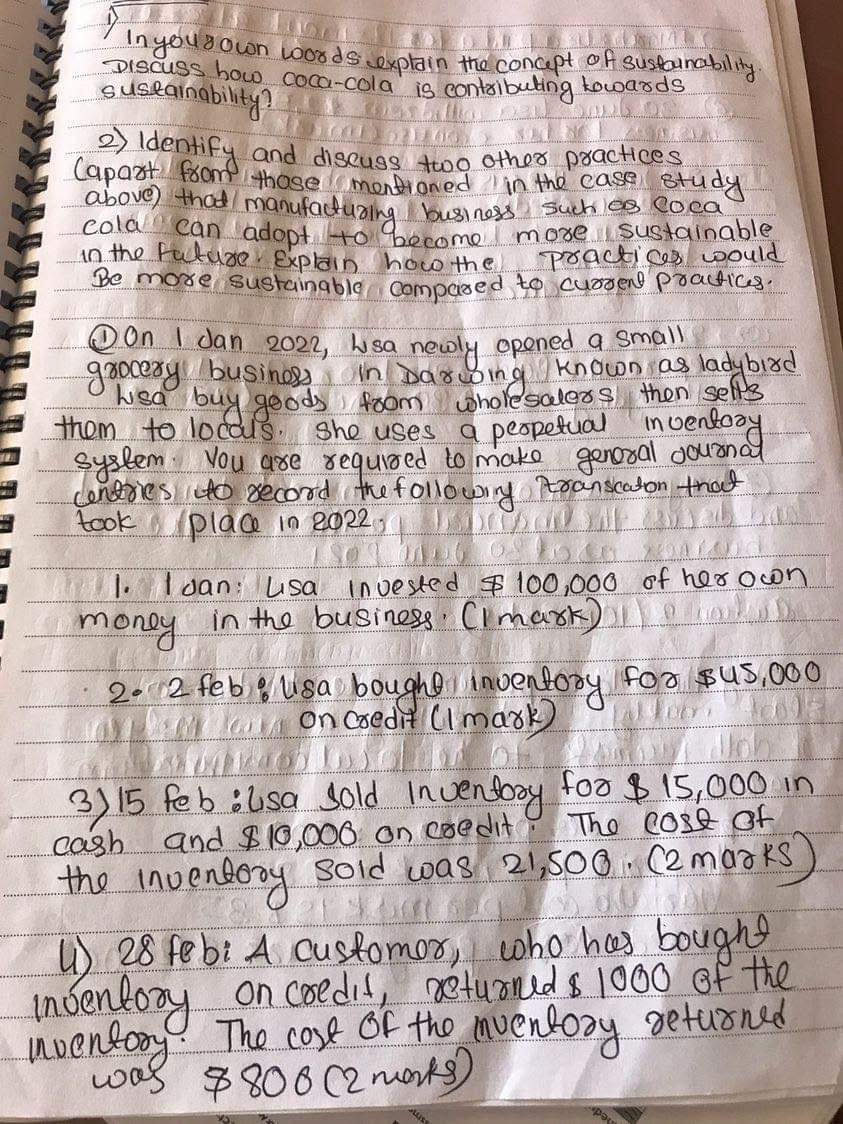 1)
In your own words explain the concept of sustainability.
Discuss how coca-cola is contributing towards
sustainability?
2) Identify and discuss two other practices
(apart from those mentioned in the case study
above) that manufacturing business such as Coca
cola can adopt to become more sustainable
in the future. Explain how the practices would
Be more sustainable compared to current practices.
① On 1 Jan 2022, Lisa newly opened a small
grocery business in Darwing known as ladybird
Lisa buy goods from wholesalers then sells
them to locals. She uses a perpetual inventory
system. You are required to make general journal
entries to record the following transcaton that
took place in 2022.
1. 1 Jan: Lisa invested $ 100,000 of her own
money in the business. (1 mark)
2. 2 feb : Lisa bought inventory for $45,000
on credit (1 mark)
3) 15 feb : Lisa sold Inventory for $ 15,000 in
cash and $10,000 on credit. The cost of
the inventory sold was 21,500. (2 marks)
4) 28 feb: A customer, who has bought
inventory on credit, returned $ 1000 of the
inventory. The cost of the inventory returned
was $800 (2 marks)